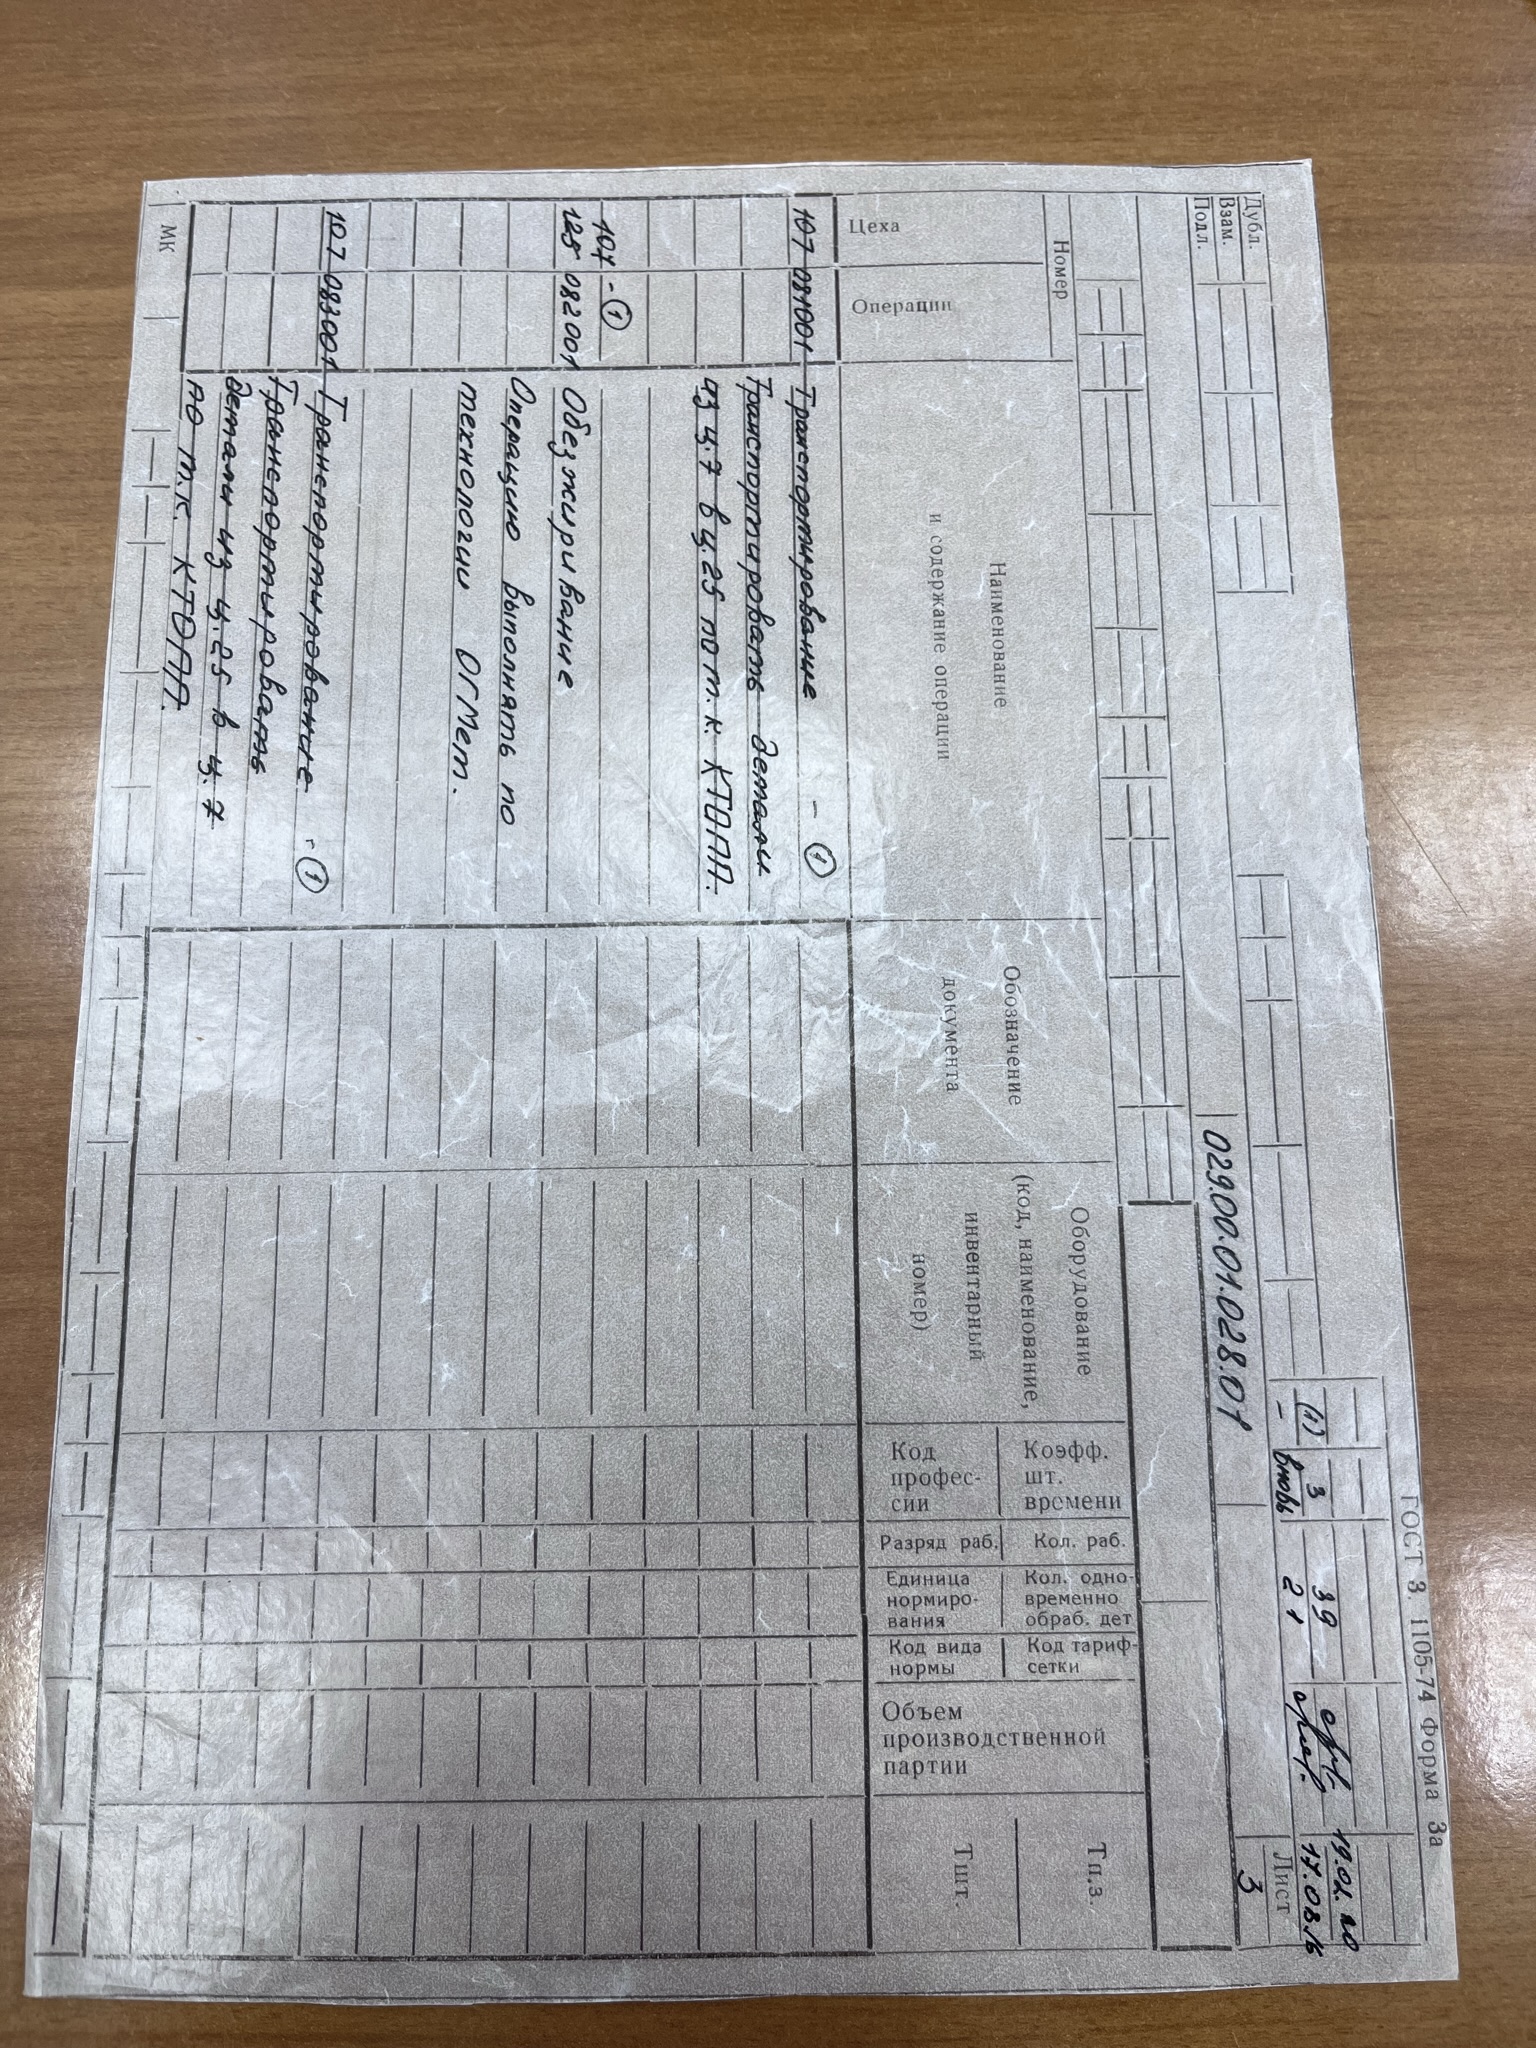 ГОСТ 3. 1105-74 Форма 3а
(1) 3 39 19.02.20
- вновь 21 17.08.16
Дубл.
Взам.
Подл.
029.00.01.028.01
Лист
3
Номер
Цеха
Операции
Наименование
и содержание операции
Обозначение
документа
Оборудование
(код, наименование,
инвентарный
номер)
Коэфф.
шт.
времени
Код
профес-
сии
Кол. раб.
Разряд раб.
Кол. одно-
временно
обраб. дет
Единица
нормиро-
вания
Код тариф-
сетки
Код вида
нормы
Объем
производственной
партии
Тп.з.
Тшт.
107 081001 Транспортирование - 1
Транспортировать детали
из ц.7 в ц.25 по т.к. КТОПП.
107 - 1
125 082001 Обезжиривание
Операцию выполнять по
технологии ОГМет.
107 083001 Транспортирование - 1
Транспортировать
детали из ц.25 в ц.7
по т.к. КТОПП.
МК